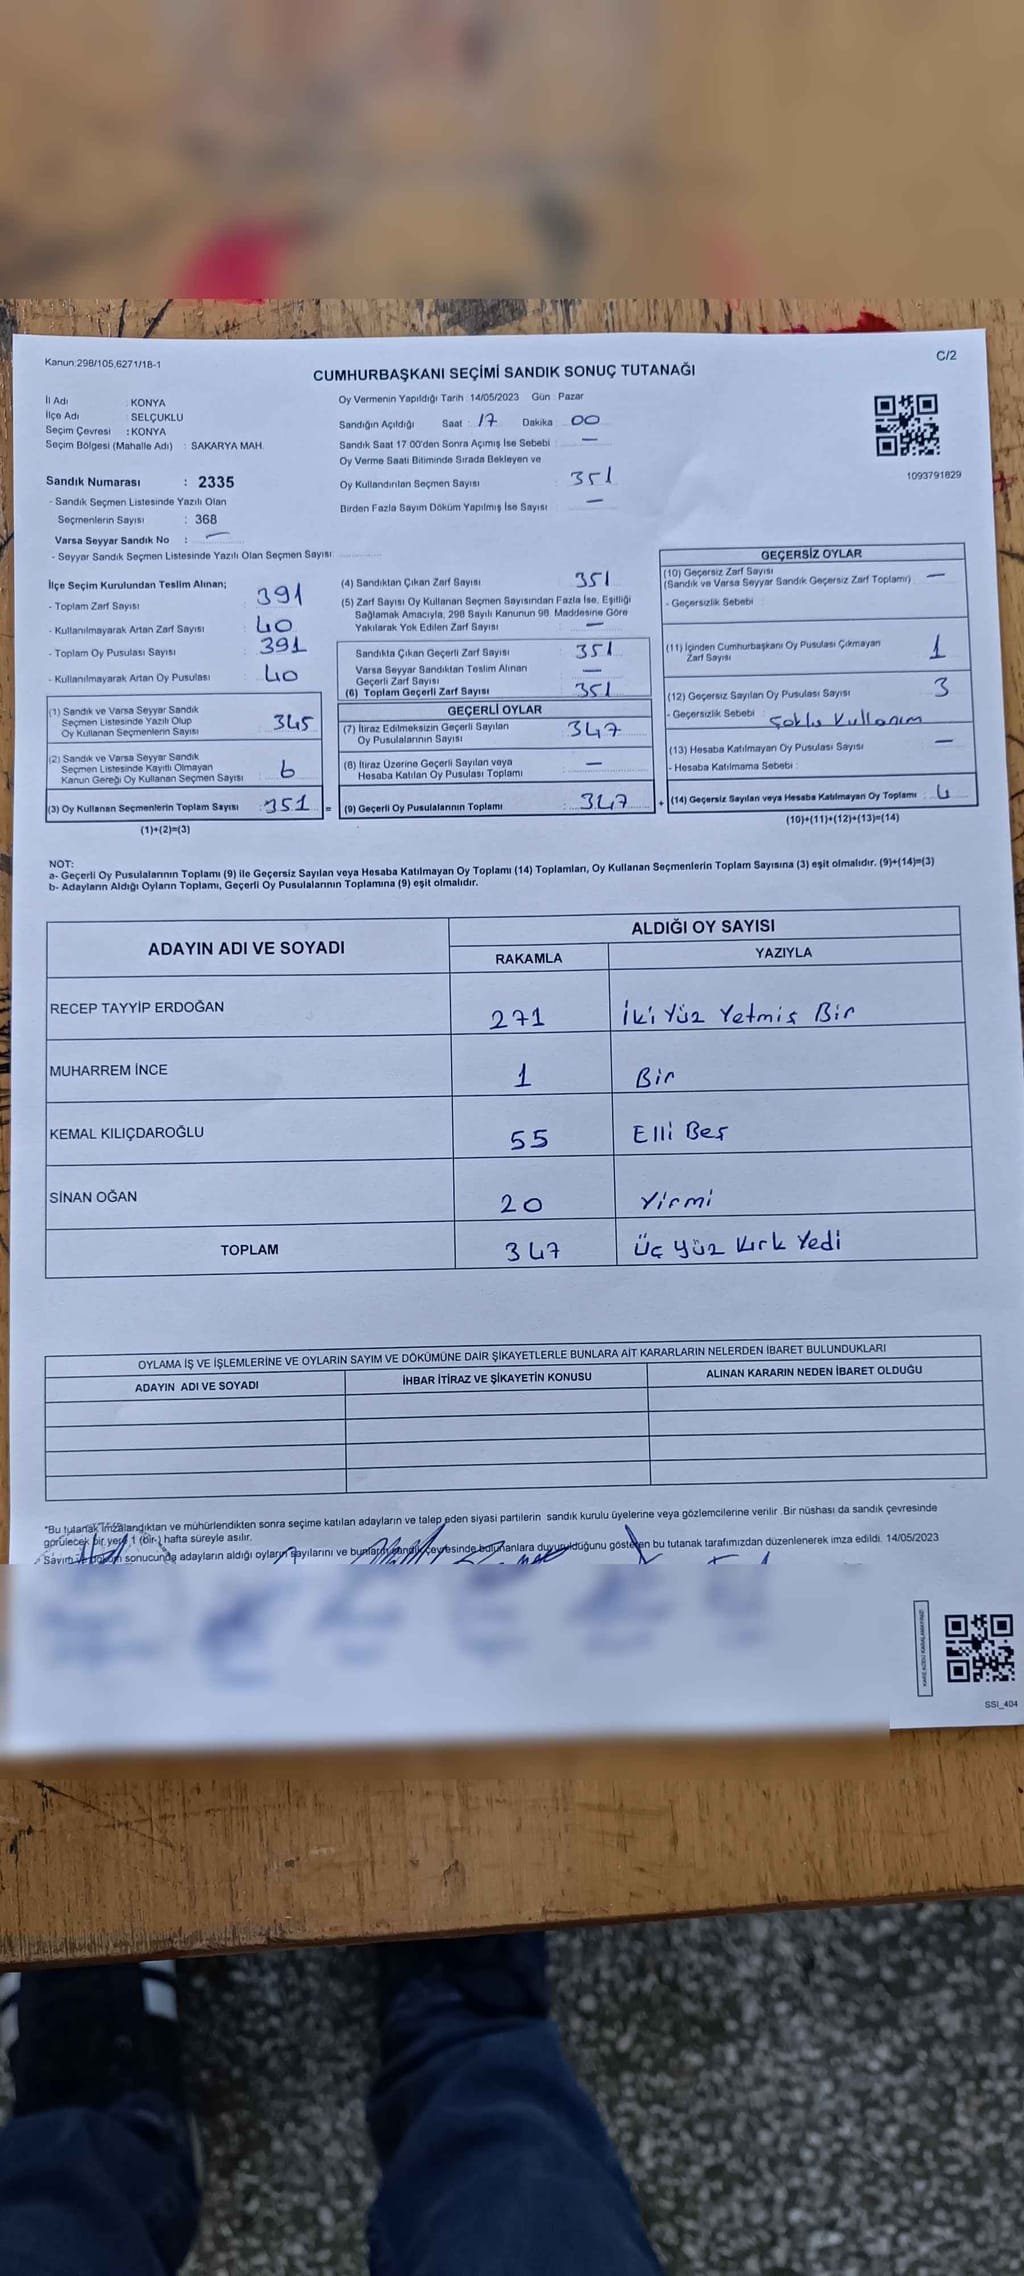 Kanun:298/105,6271/18-1
C/2
CUMHURBAŞKANI SEÇİMİ SANDIK SONUÇ TUTANAĞI
İl Adı : KONYA
İlçe Adı : SELÇUKLU
Seçim Çevresi : KONYA
Seçim Bölgesi (Mahalle Adı) : SAKARYA MAH.
Oy Vermenin Yapıldığı Tarih : 14/05/2023 Gün : Pazar
Sandığın Açıldığı Saat : 17 Dakika : 00
Sandık Saat 17 00'den Sonra Açımış İse Sebebi : —
Oy Verme Saati Bitiminde Sırada Bekleyen ve
Oy Kullandırılan Seçmen Sayısı : 351
Birden Fazla Sayım Döküm Yapılmış İse Sayısı : —
1093791829
Sandık Numarası : 2335
- Sandık Seçmen Listesinde Yazılı Olan
Seçmenlerin Sayısı : 368
Varsa Seyyar Sandık No : —
- Seyyar Sandık Seçmen Listesinde Yazılı Olan Seçmen Sayısı :
İlçe Seçim Kurulundan Teslim Alınan;
- Toplam Zarf Sayısı : 391
- Kullanılmayarak Artan Zarf Sayısı : 40
- Toplam Oy Pusulası Sayısı : 391
- Kullanılmayarak Artan Oy Pusulası : 40
(1) Sandık ve Varsa Seyyar Sandık
Seçmen Listesinde Yazılı Olup
Oy Kullanan Seçmenlerin Sayısı : 345
(2) Sandık ve Varsa Seyyar Sandık
Seçmen Listesinde Kayıtlı Olmayan
Kanun Gereği Oy Kullanan Seçmen Sayısı : 6
(3) Oy Kullanan Seçmenlerin Toplam Sayısı : 351 =
(1)+(2)=(3)
(4) Sandıktan Çıkan Zarf Sayısı : 351
(5) Zarf Sayısı Oy Kullanan Seçmen Sayısından Fazla İse, Eşitliği
Sağlamak Amacıyla, 298 Sayılı Kanunun 98. Maddesine Göre
Yakılarak Yok Edilen Zarf Sayısı : —
Sandıkta Çıkan Geçerli Zarf Sayısı : 351
Varsa Seyyar Sandıktan Teslim Alınan
Geçerli Zarf Sayısı : —
(6) Toplam Geçerli Zarf Sayısı : 351
GEÇERLİ OYLAR
(7) İtiraz Edilmeksizin Geçerli Sayılan
Oy Pusulalarının Sayısı : 347
(8) İtiraz Üzerine Geçerli Sayılan veya
Hesaba Katılan Oy Pusulası Toplamı : —
(9) Geçerli Oy Pusulalarının Toplamı : 347 +
GEÇERSİZ OYLAR
(10) Geçersiz Zarf Sayısı
(Sandık ve Varsa Seyyar Sandık Geçersiz Zarf Toplamı) : —
- Geçersizlik Sebebi :
(11) İçinden Cumhurbaşkanı Oy Pusulası Çıkmayan
Zarf Sayısı : 1
(12) Geçersiz Sayılan Oy Pusulası Sayısı : 3
- Geçersizlik Sebebi : Çoklu Kullanım
(13) Hesaba Katılmayan Oy Pusulası Sayısı : —
- Hesaba Katılmama Sebebi :
(14) Geçersiz Sayılan veya Hesaba Katılmayan Oy Toplamı : 4
(10)+(11)+(12)+(13)=(14)
NOT:
a- Geçerli Oy Pusulalarının Toplamı (9) ile Geçersiz Sayılan veya Hesaba Katılmayan Oy Toplamı (14) Toplamları, Oy Kullanan Seçmenlerin Toplam Sayısına (3) eşit olmalıdır. (9)+(14)=(3)
b- Adayların Aldığı Oyların Toplamı, Geçerli Oy Pusulalarının Toplamına (9) eşit olmalıdır.
ADAYIN ADI VE SOYADI ALDIĞI OY SAYISI
RAKAMLA YAZIYLA
RECEP TAYYİP ERDOĞAN 271 İki Yüz Yetmiş Bir
MUHARREM İNCE 1 Bir
KEMAL KILIÇDAROĞLU 55 Elli Beş
SİNAN OĞAN 20 Yirmi
TOPLAM 347 Üç Yüz Kırk Yedi
OYLAMA İŞ VE İŞLEMLERİNE VE OYLARIN SAYIM VE DÖKÜMÜNE DAİR ŞİKAYETLERLE BUNLARA AİT KARARLARIN NELERDEN İBARET BULUNDUKLARI
ADAYIN ADI VE SOYADI İHBAR İTİRAZ VE ŞİKAYETİN KONUSU ALINAN KARARIN NEDEN İBARET OLDUĞU
*Bu tutanak imzalandıktan ve mühürlendikten sonra seçime katılan adayların ve talep eden siyasi partilerin sandık kurulu üyelerine veya gözlemcilerine verilir .Bir nüshası da sandık çevresinde
görülecek bir yere 1 (bir ) hafta süreyle asılır.
Sayım ve döküm sonucunda adayların aldığı oyların sayılarını ve bunların sandık çevresinde bulunanlara duyurulduğunu gösteren bu tutanak tarafımızdan düzenlenerek imza edildi. 14/05/2023
SSI_404